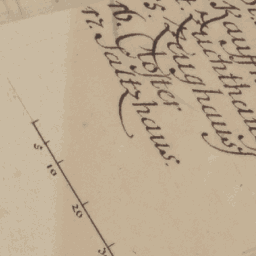 Kauffh
Zuchthauß
15. Zeughauß
16. Closter
17. Saltzhaus.
5
10
20